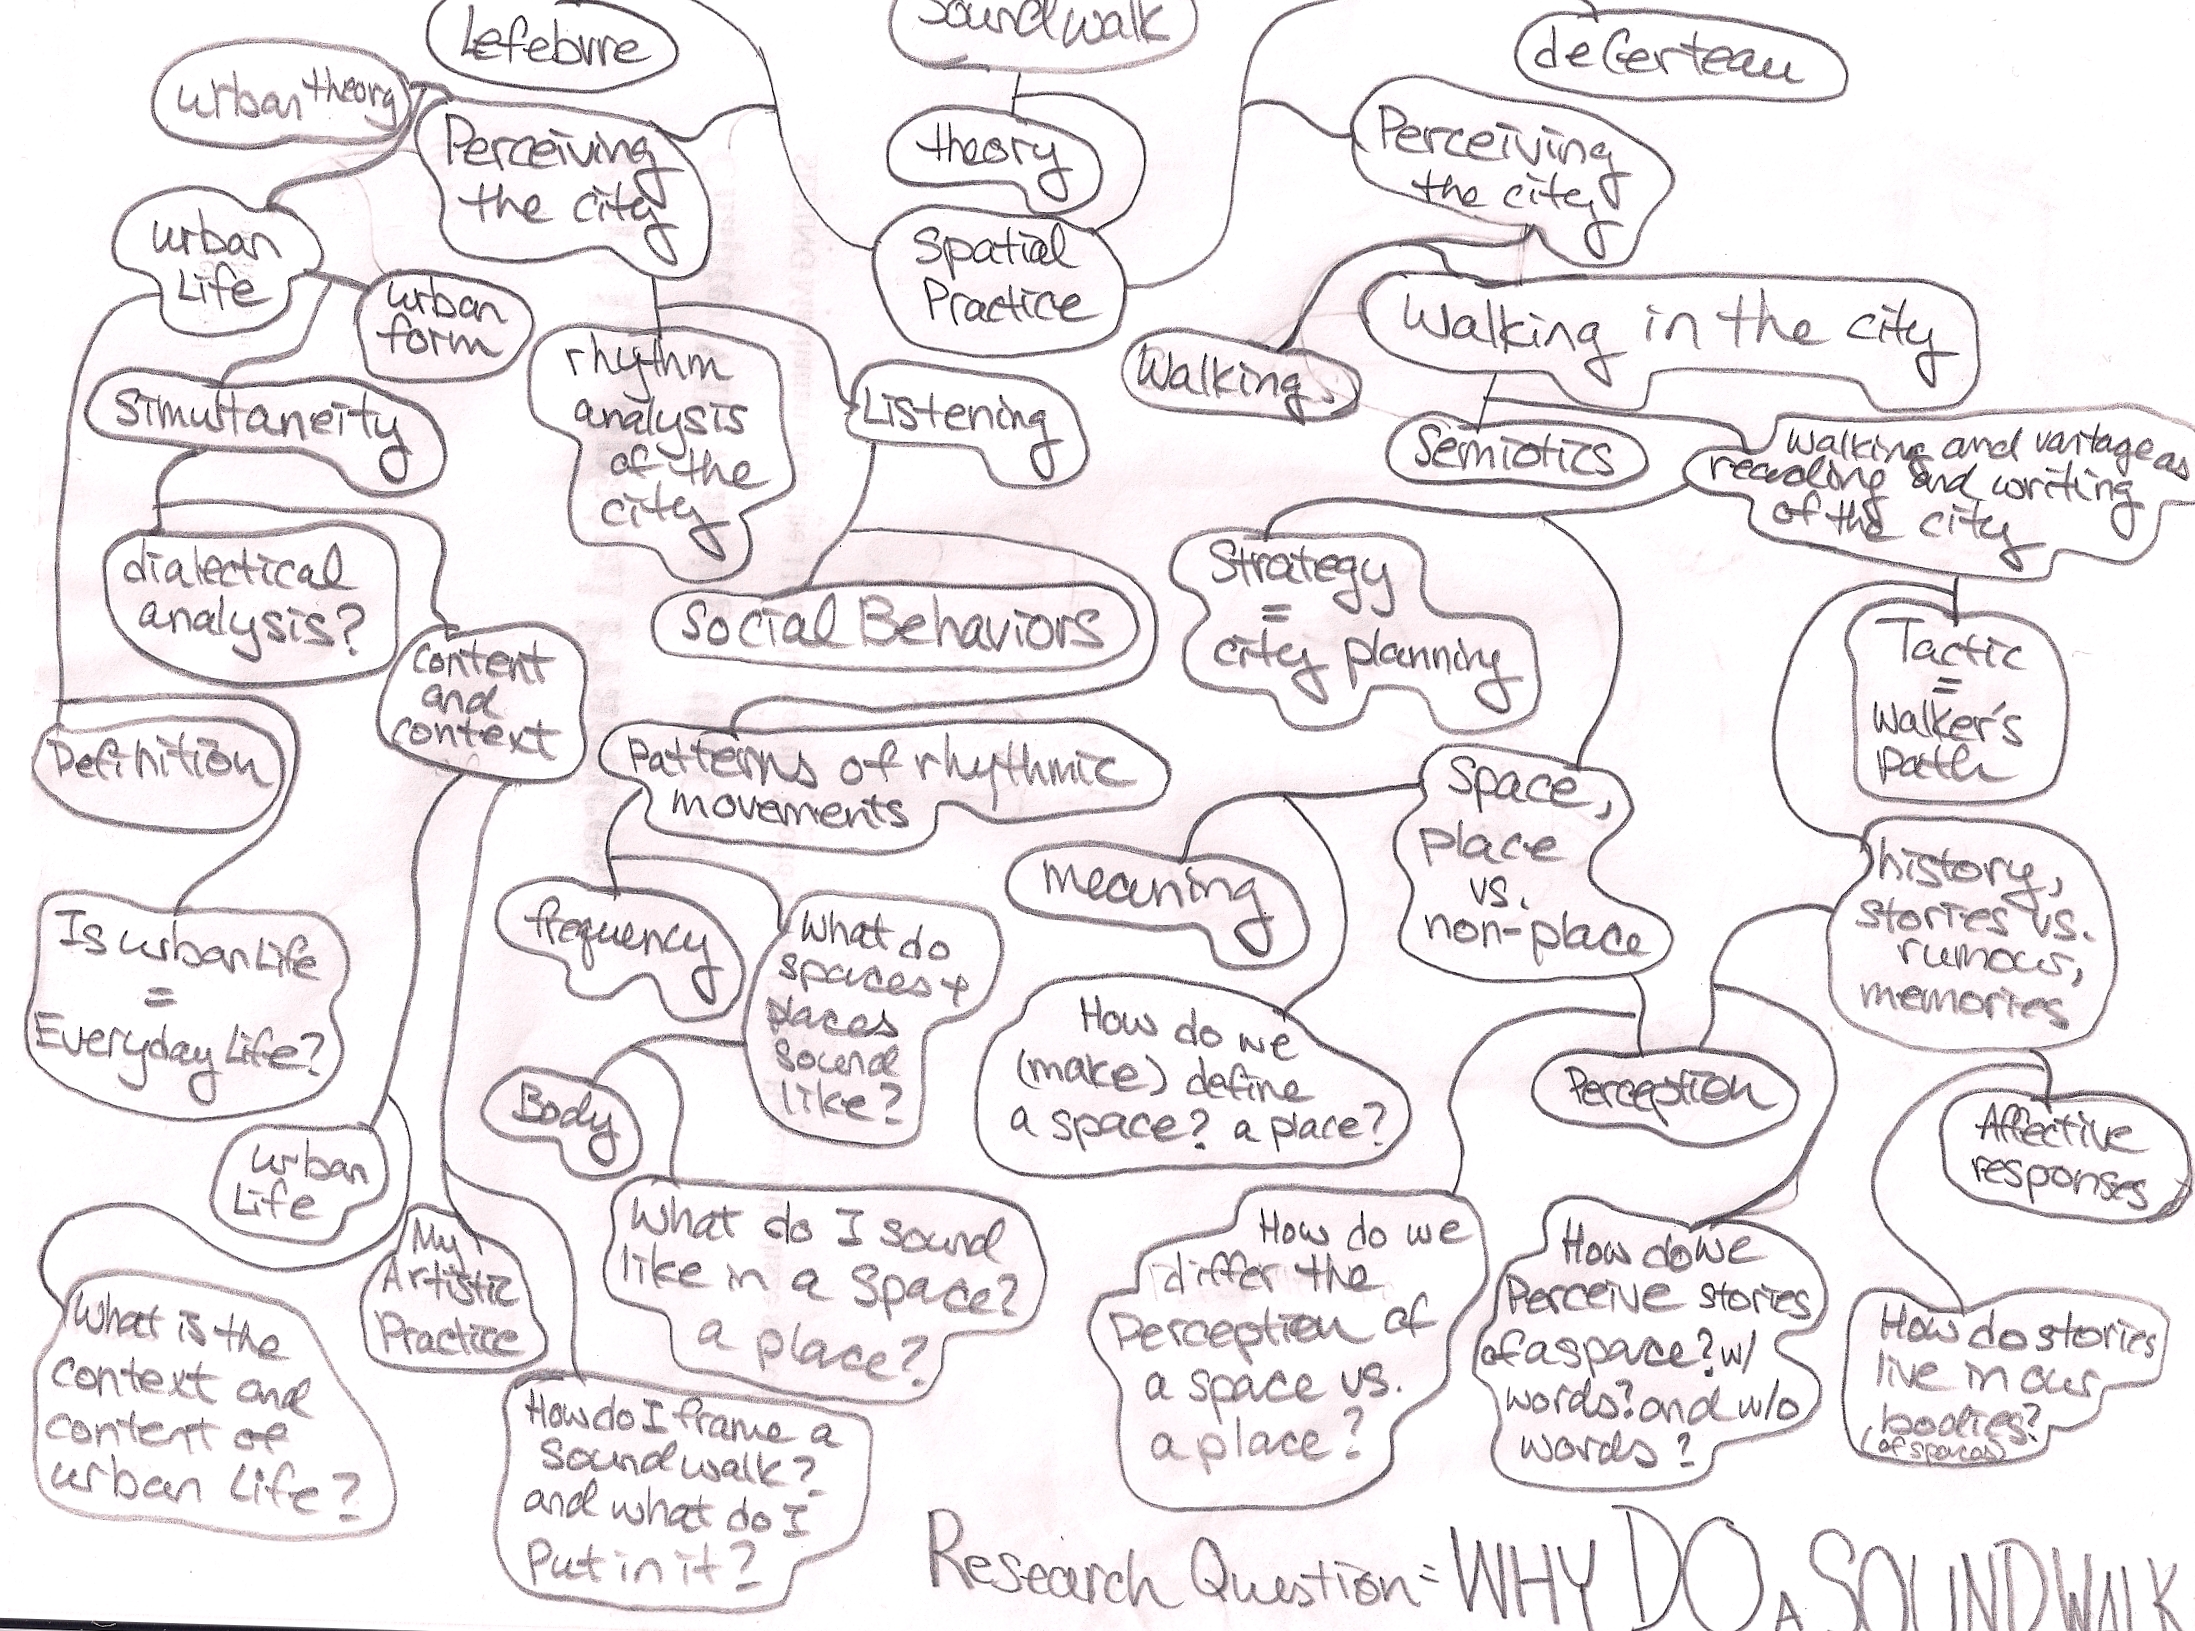 Lefebvre
Soundwalk
deCerteau
urban theory
Perceiving
the city
theory
Perceiving
the city
urban
Life
urban
form
Spatial
Practice
Walking in the city
Walking
rhythm
analysis
of the
city
Listening
Simultaneity
Semiotics
walking and vantage as
reading and writing
of the city
dialectical
analysis?
content
and
context
Social Behaviors
Strategy
=
city planning
Tactic
=
walker's
path
Definition
Patterns of rhythmic
movements
Space,
place
vs.
non-place
meaning
history,
stories vs.
rumours,
memories
Is urban Life
=
Everyday Life?
frequency
What do
spaces +
places
sound
like?
How do we
(make) define
a space? a place?
Perception
Body
Affective
responses
urban
Life
My
Artistic
Practice
What do I sound
like in a space?
a place?
How do we
differ the
Perception of
a space vs.
a place?
How do we
Perceive stories
of a space? w/
words? and w/o
words?
How do stories
live in our
bodies?
(of spaces)
What is the
context and
content of
urban Life?
How do I frame a
Soundwalk?
and what do I
Put in it?
Research Question = WHY DO A SOUNDWALK